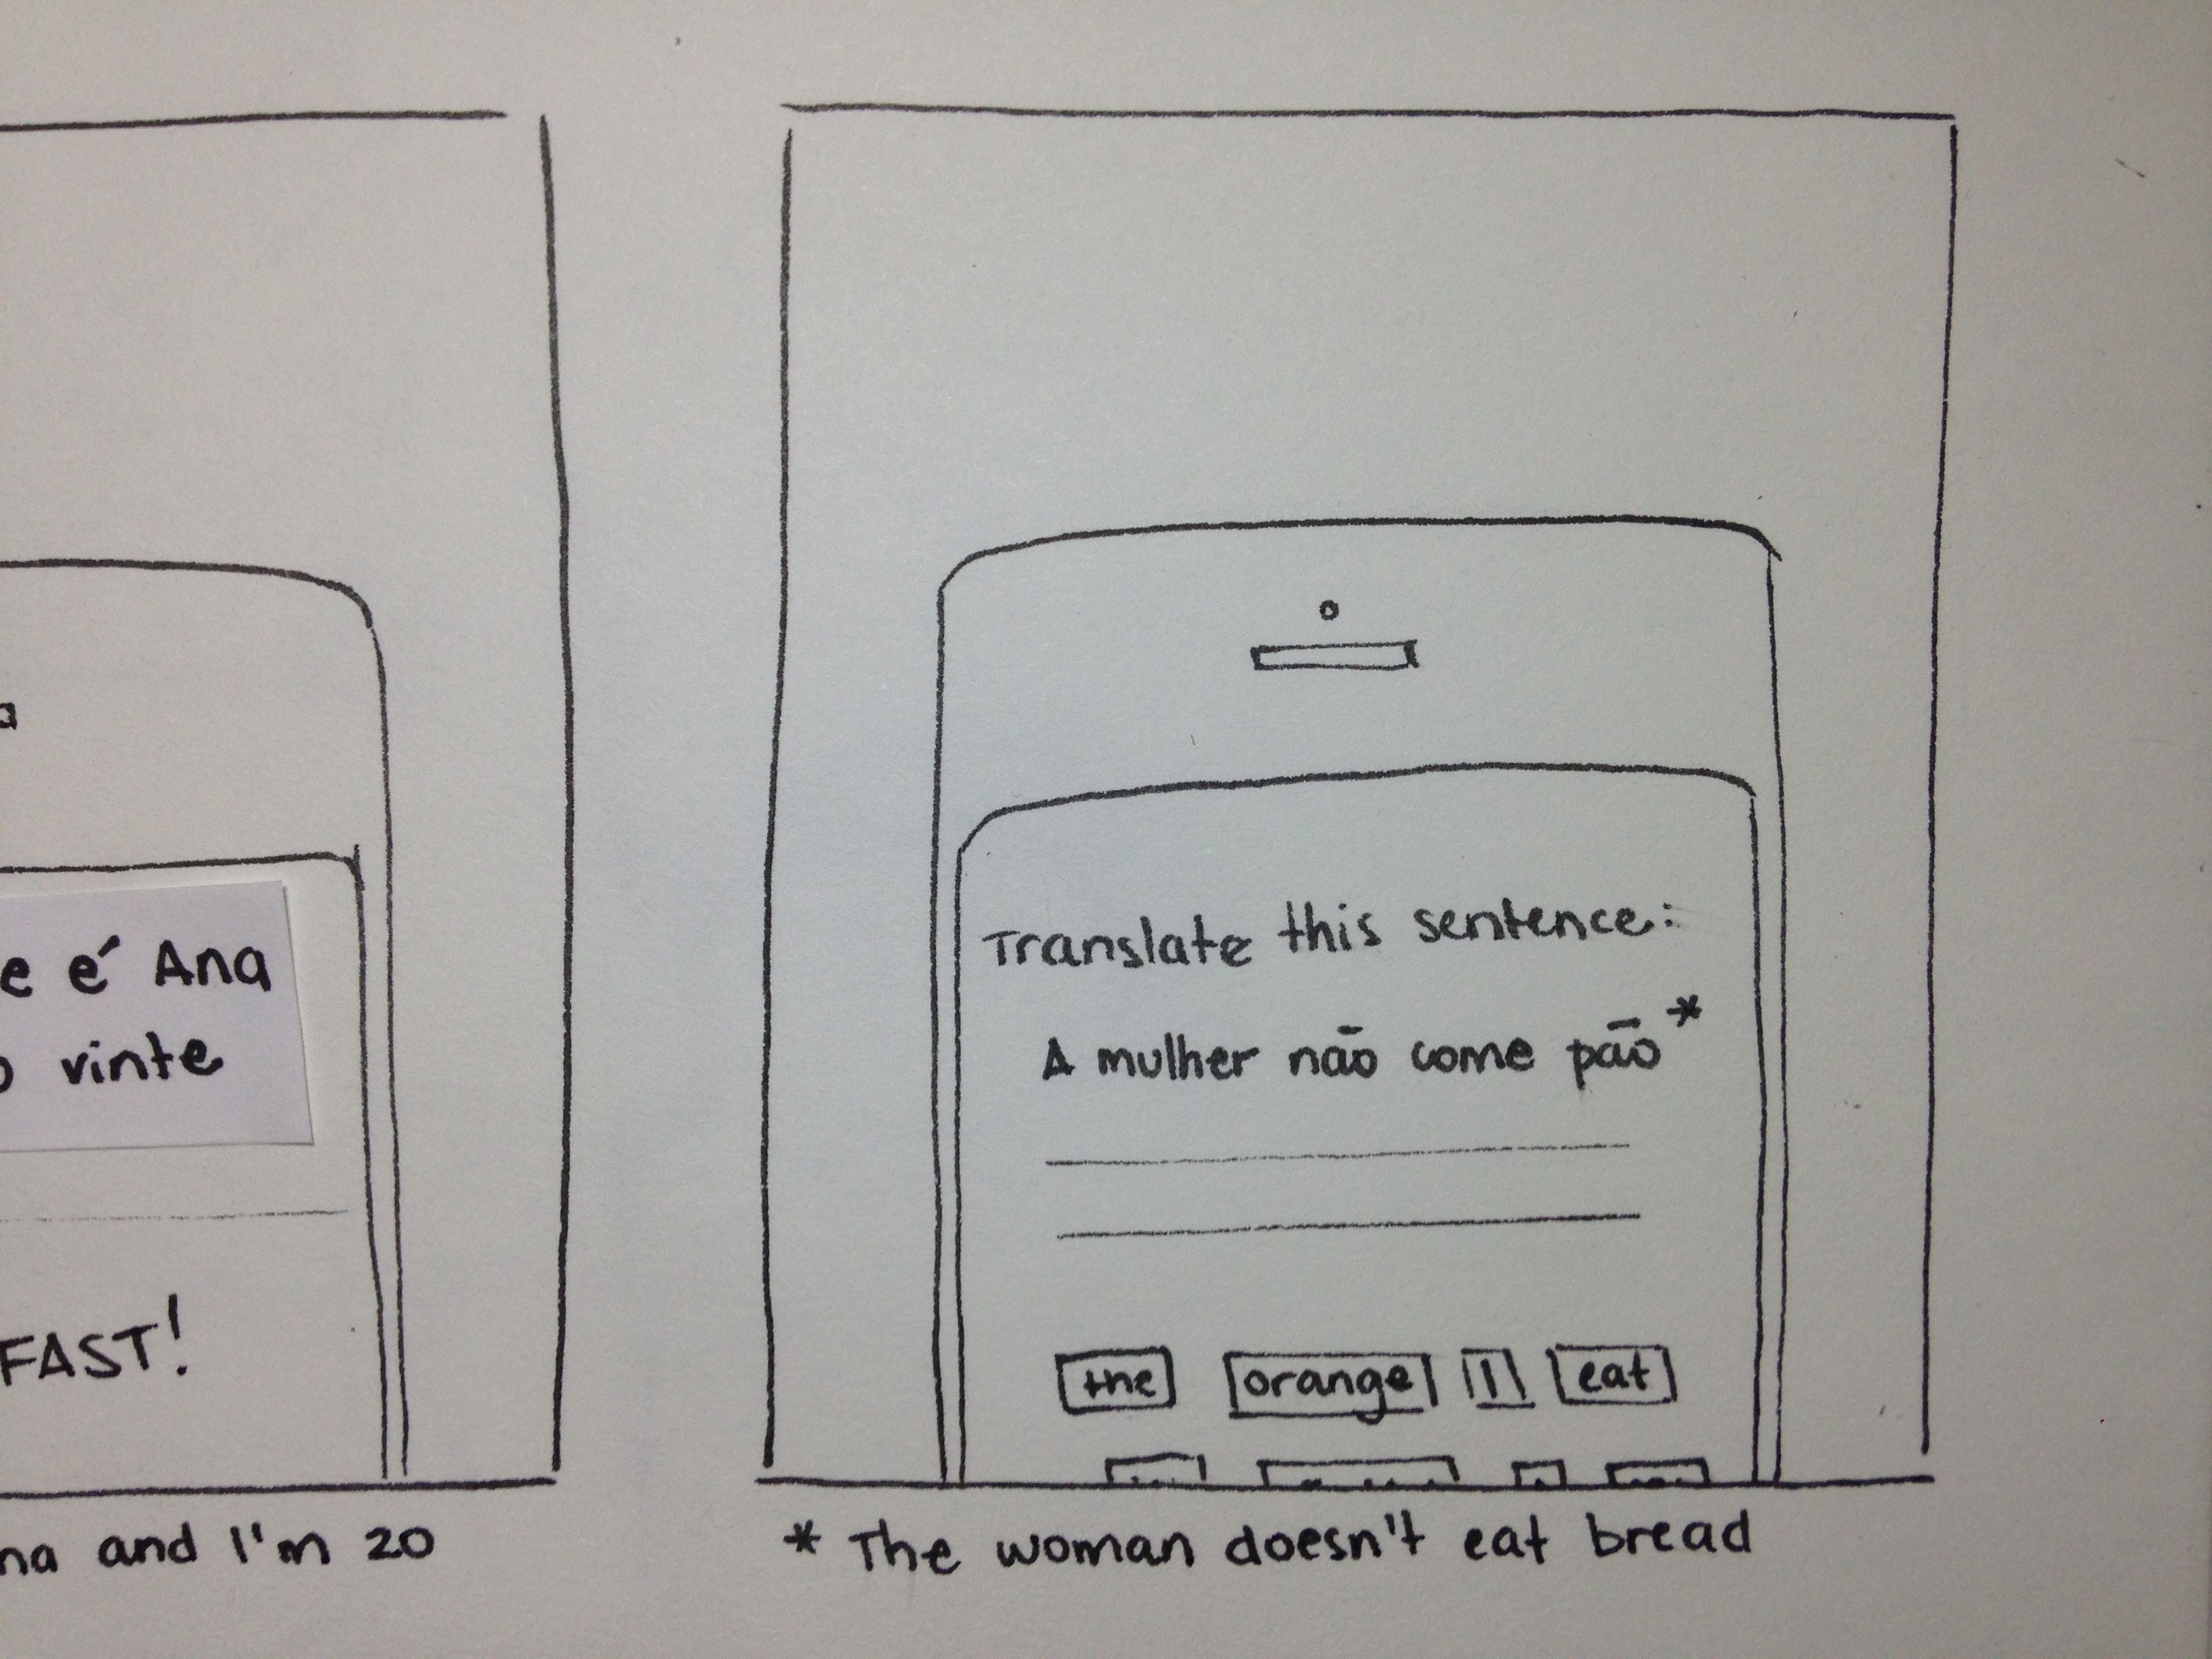 e é Ana
vinte
FAST!
na and I'm 20
Translate this sentence:
A mulher não come pão *
the orange eat
* The woman doesn't eat bread